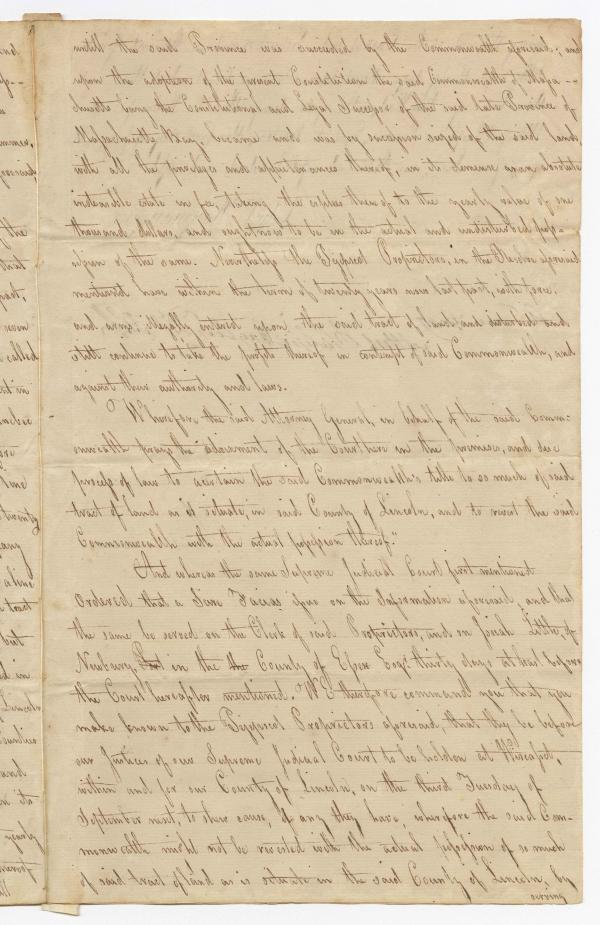 untill the said Province was succeeded by the Commonwealth aforesaid; and
upon the adoption of the present Constitution the said Commonwealth of Massa-
chusetts being the Constitutional and Legal Successor of the said late Province of
Massachusetts Bay, became and was by succession seized of the said land,
with all the priviledges and appurtenances thereof, in its demesne as an absolute
inheritable estate in fee, taking the esplees thereof to the yearly value of one
thousand dollars, and ought now to be in the actual and undisturbed poss-
ession of the same. Nevertheless the Pejepscot Proprietors, in the Resolve aforesaid
mentioned have within the term of twenty years now last past, with force
and arms, illegally entered upon the said tract of land and intruded and
still continue to take the profits thereof in contempt of said Commonwealth, and
against their authority and laws.
Wherefore the said Attorney General, in behalf of the said Comm-
onwealth prays the advisement of the Court here in the premises, and due
process of law to ascertain the said Commonwealth's title to so much of said
tract of land as is situate, in said County of Lincoln, and to revest the said
Commonwealth with the actual possession thereof."
And whereas the same Supreme Judicial Court first mentioned
Ordered that a Scire Facias issue on the Information aforesaid, and that
the same be served on the Clerk of said Proprietors, and on Josiah Little, of
Newbury, in the the County of Essex Esqr. thirty days at least before
the Court hereafter mentioned. We therefore command you that you
make known to the Pejepscot Proprietors aforesaid, that they be before
our Justices of our Supreme Judicial Court to be holden at Wiscasset,
within and for our County of Lincoln, on the third Tuesday of
September next, to shew cause, if any they have, wherefore the said Com-
monwealth might not be revested with the actual possession of so much
of said tract of land as is situate in the said County of Lincoln, by